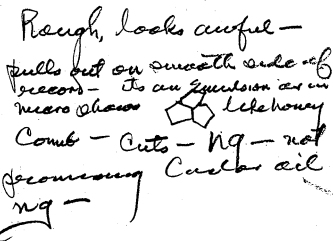 Rough, looks awful —
pulls out on smooth side of
record — its an emulsion as in
micro shows like honey
Comb — Cuts — ng — not
promising Castor oil
ng —